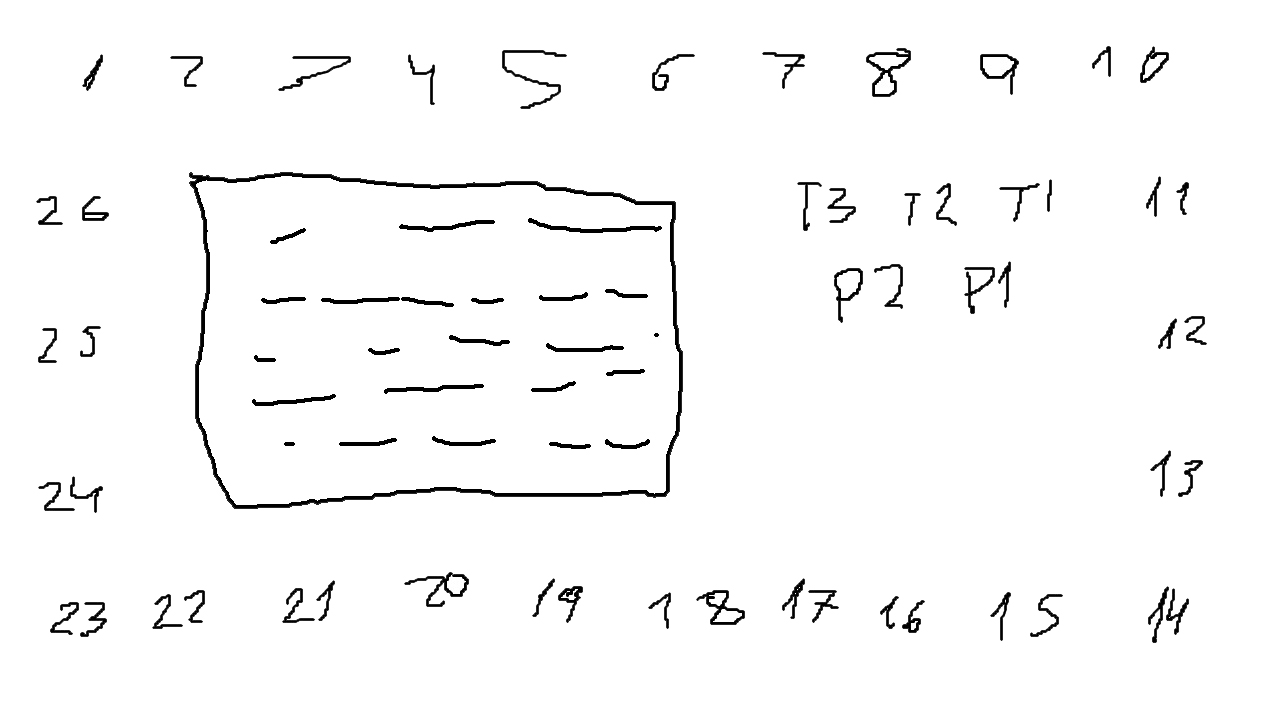 1 2 4 5 6 7 8 9 10
26 T3 T2 T1 11
P2 P1
25 12
24 13
23 22 21 20 19 18 17 16 15 14